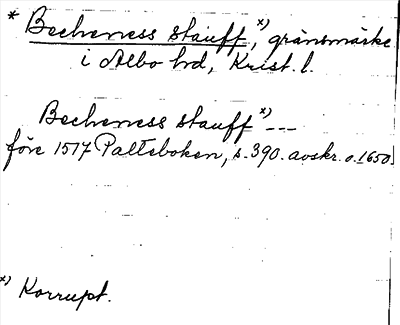 * Becheness stauff, x) gränsmärke
i Albo hd, Krist. l.
Becheness stauff x) ---
före 1517 Palteboken, s. 390. avskr. o. 1650.
x) Korrupt.